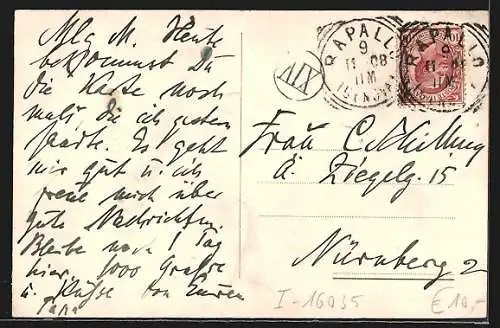 M. Heute
bekommst Du
die Karte noch
mals, die ich gestern
Es geht
mir gut u. ich
freue mich über
gute Nachrichten.
Bleibe noch 1 Tag
hier. 1000 Grüsse
u. Küsse von Eurem
Papa
RAPALLO
9
11 08
11M
(GENOVA)
XIV
RAPALLO
9
11M
Frau C. Schilling
Ä. Ziegelg. 15
Nürnberg 2
I-16035
€10,-